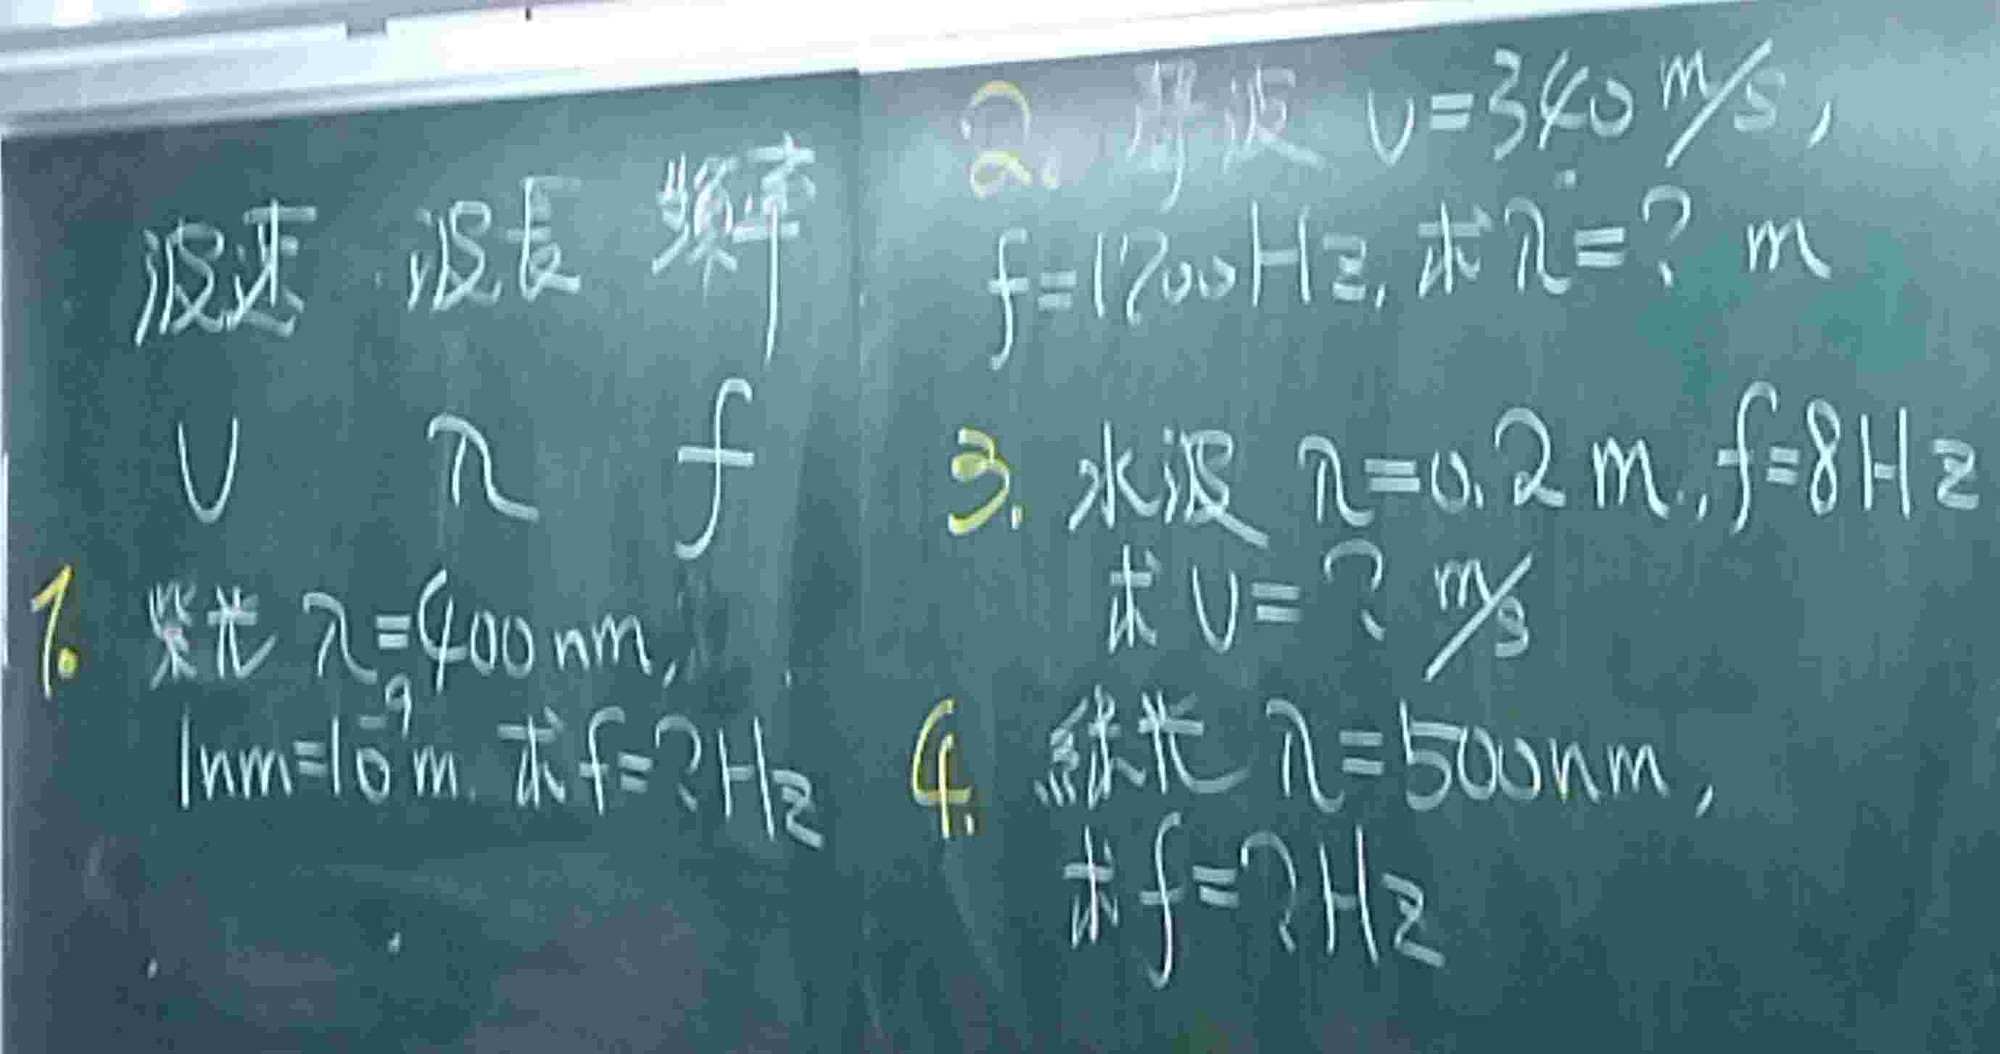 波速 波長 頻率
υ λ f
1. 紫光 λ=400nm,
1nm=10⁻⁹m. 求f=?Hz
2. 聲波 υ=340 m/s,
f=1700Hz, 求λ=? m
3. 水波 λ=0.2m, f=8Hz
求υ=? m/s
4. 綠光 λ=500nm,
求f=?Hz